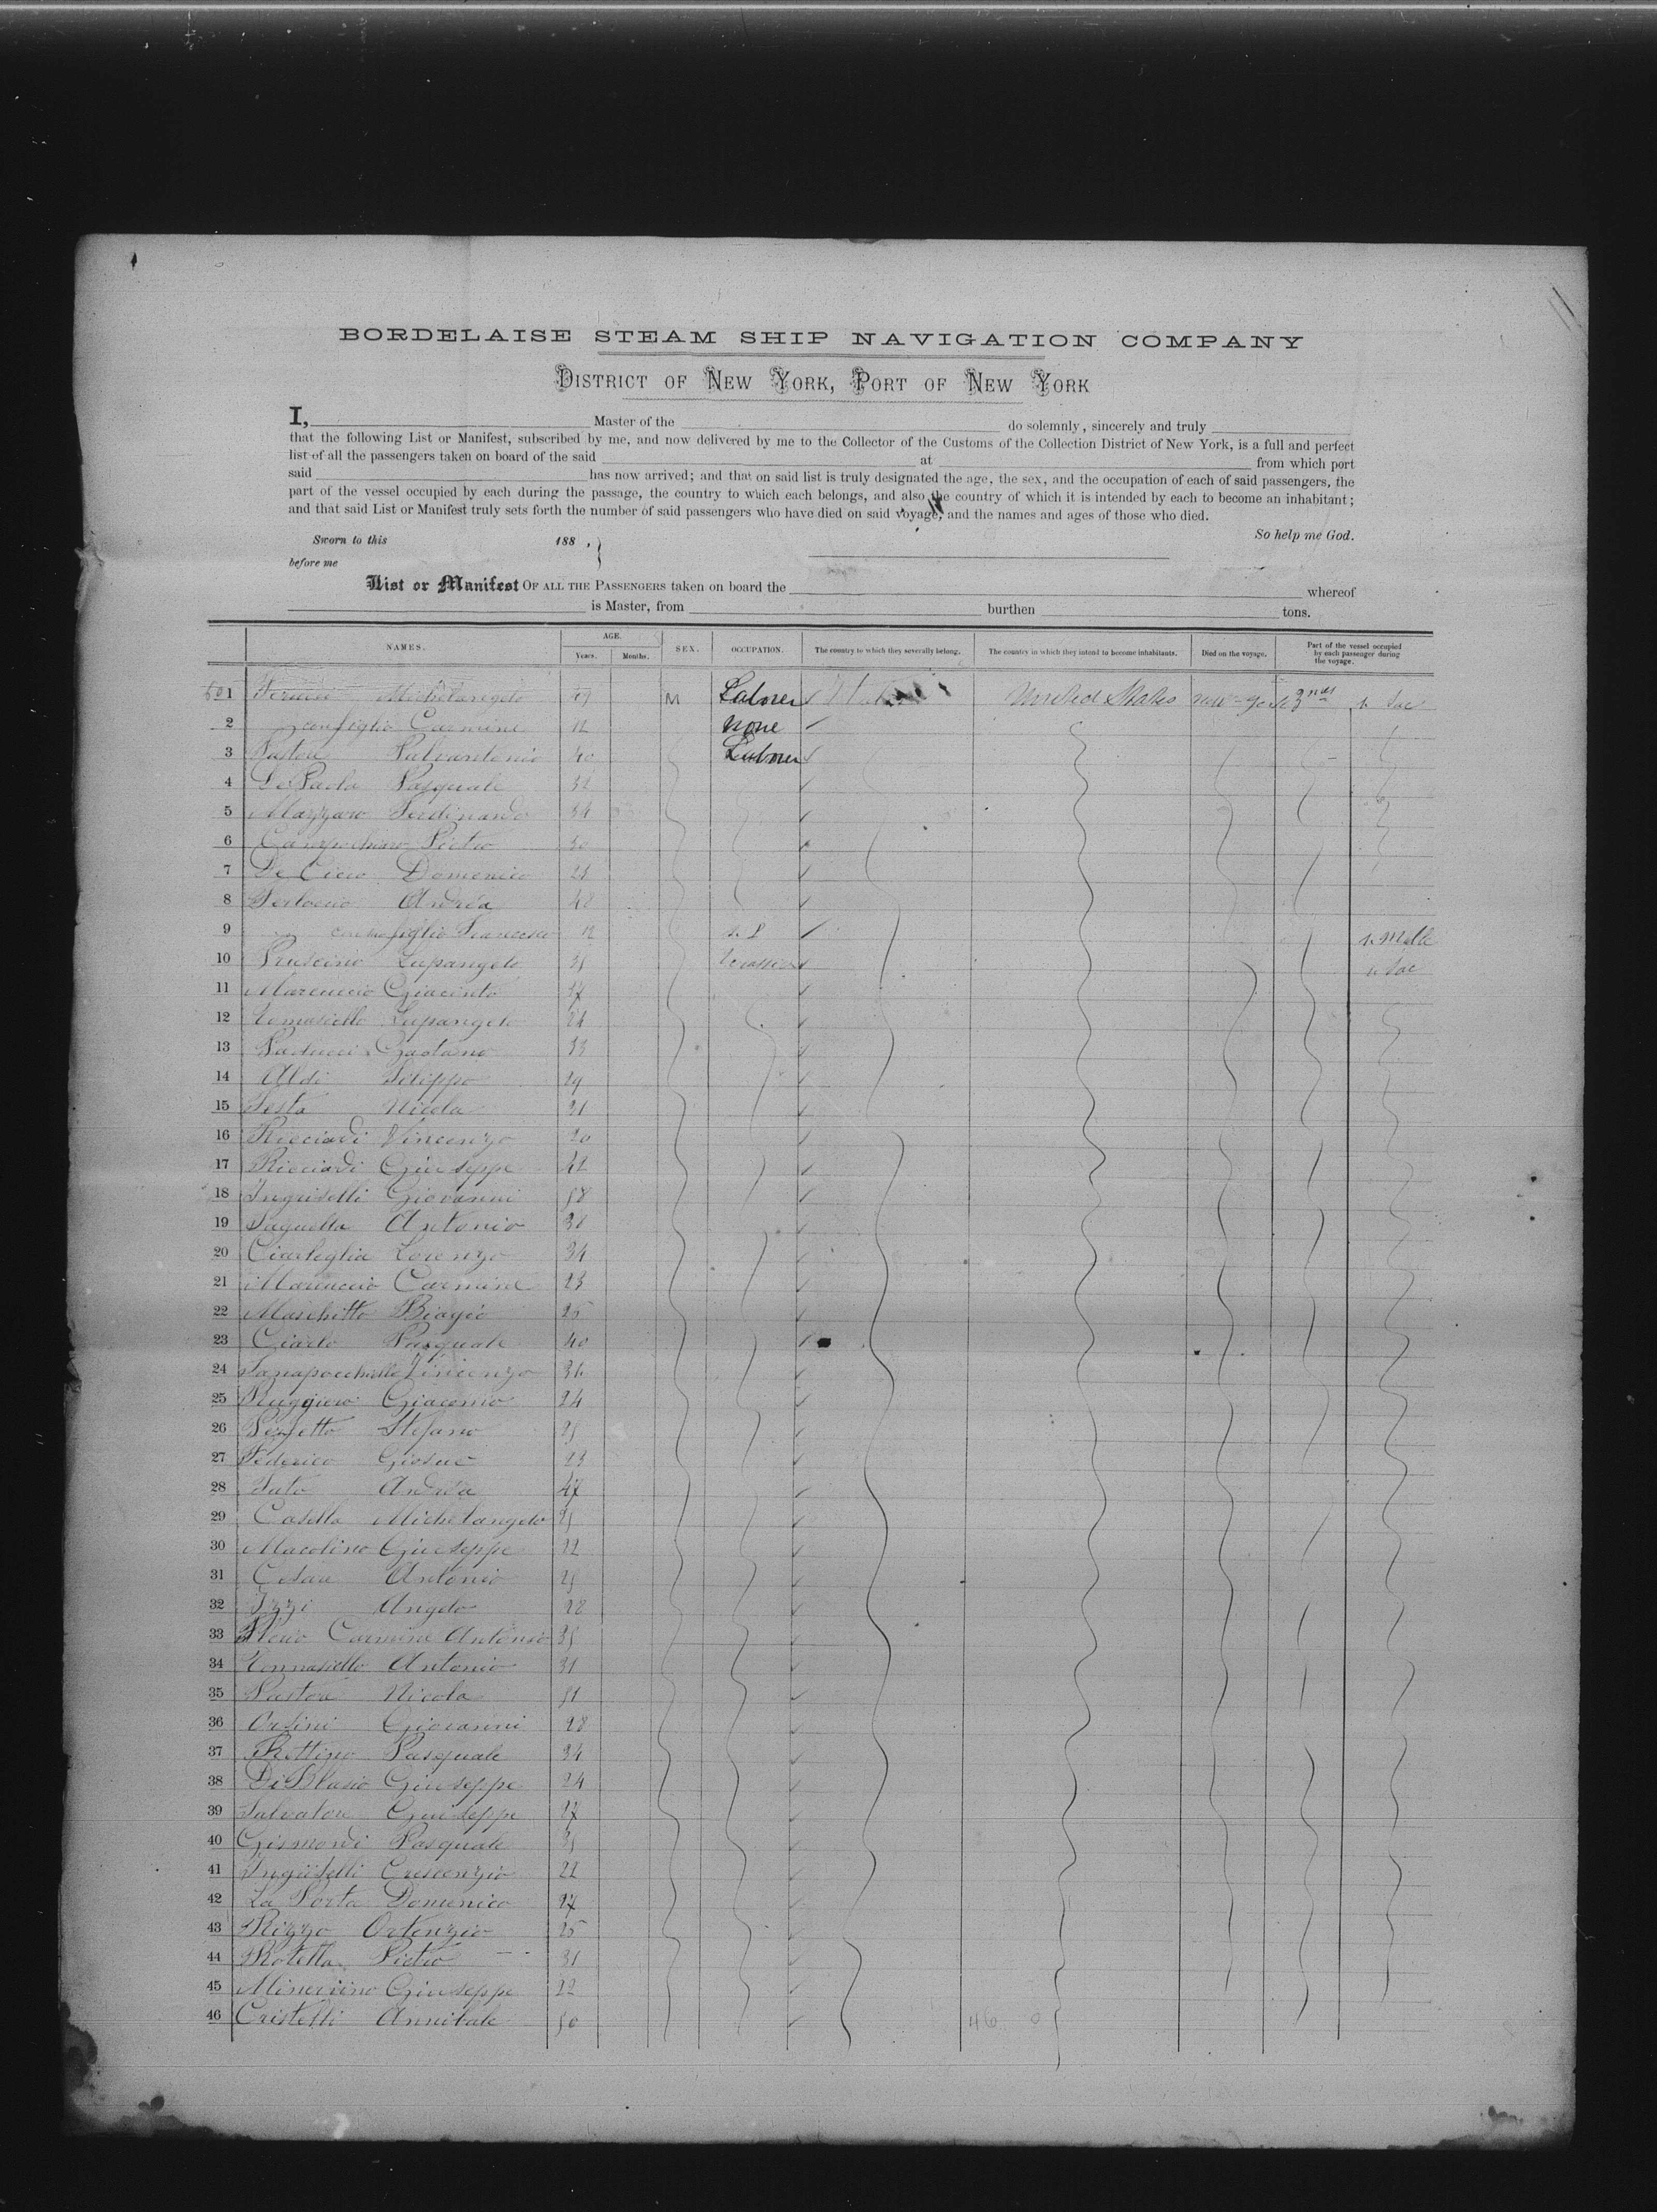 BORDELAISE STEAM SHIP NAVIGATION COMPANY
DISTRICT OF NEW YORK, PORT OF NEW YORK
I, Master of the do solemnly, sincerely and truly
that the following List or Manifest, subscribed by me, and now delivered by me to the Collector of the Customs of the Collection District of New York, is a full and perfect
list of all the passengers taken on board of the said at from which port
said has now arrived; and that on said list is truly designated the age, the sex, and the occupation of each of said passengers, the
part of the vessel occupied by each during the passage, the country to which each belongs, and also the country of which it is intended by each to become an inhabitant;
and that said List or Manifest truly sets forth the number of said passengers who have died on said voyage, and the names and ages of those who died.
Sworn to this 188 . So help me God.
before me
List or Manifest OF ALL THE PASSENGERS taken on board the whereof
is Master, from burthen tons.
NAMES. AGE. Years. Months. SEX. OCCUPATION. The country to which they severally belong. The country in which they intend to become inhabitants. Died on the voyage. Part of the vessel occupied by each passenger during the voyage.
601 Michelangelo 49 M Laborer United States New-York
2 con figlio Carmine 12 none
3 Pastore 40 Laborer
4 De Paola Pasquale 32
5 Mazzaro Ferdinando 34
6 Campochiaro Pietro 30
7 De Cicco Domenico 25
8 Andrea 48
9 figlio Francesco 12
10 Lupangelo 35
11 Marcuccio Giacinto 17
12 Tomasiello Lupangelo 24
13 Paolucci Gaetano 33
14 Aldi Filippo 29
15 Testa Nicola 21
16 Ricciardi Vincenzo 20
17 Ricciardi Giuseppe 42
18 Giovanni 58
19 Antonio 38
20 Ciarleglia Lorenzo 34
21 Marcuccio Carmine 23
22 Maschitto Biagio 25
23 Ciarlo Pasquale 40
24 Vincenzo 36
25 Ruggiero Giacomo 24
26 Stefano 25
27 Federico Giosue 23
28 Andrea 47
29 Casella Michelangelo 25
30 Macolino Giuseppe 22
31 Cesare Antonio 25
32 Izzi Angelo 28
33 Carmine Antonio 35
34 Tomasiello Antonio 31
35 Pastore Nicola 51
36 Orsini Giovanni 28
37 Pasquale 34
38 Di Blasio Giuseppe 24
39 Salvatore Giuseppe 27
40 Gismondi Pasquale 35
41 Crescenzio 22
42 La Porta Domenico 27
43 Rizzo Ortenzio 25
44 Rotella Pietro 31
45 Minervino Giuseppe 22
46 Cristelli Annibale 50
46 0